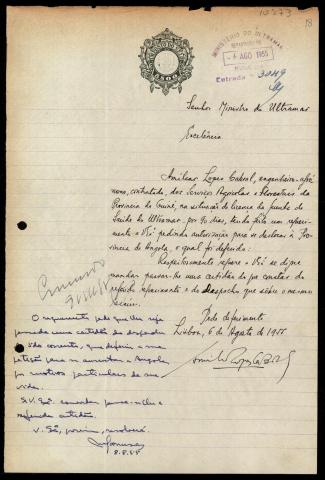 10273
18
MINISTÉRIO DO ULTRAMAR
- 6 AGO 1955
Entrada - 3049
Senhor Ministro do Ultramar
Excelência
Amílcar Lopes Cabral, engenheiro-agró-
nomo, contratado, dos Serviços Agrícolas e Florestais da
Província da Guiné, na situação de licença da Junta de
Saúde do Ultramar, por 90 dias, tendo feito um requeri-
mento a V. Exª pedindo autorização para se deslocar à Pro-
víncia de Angola, o qual foi deferido:
Respeitosamente requere a V. Exª se dig-
ne mandar passar-lhe uma certidão do que constar do
referido requerimento e do despacho que sobre o mesmo
Pede deferimento
Lisboa, 6 de Agosto de 1955
Amílcar Lopes Cabral
Concordo
O requerente pede que lhe seja
passada uma certidão do despacho
que deferiu a sua
petição para se ausentar a Angola
por motivos particulares da sua
vida.
V. Exª, porém, resolverá.
8.8.55